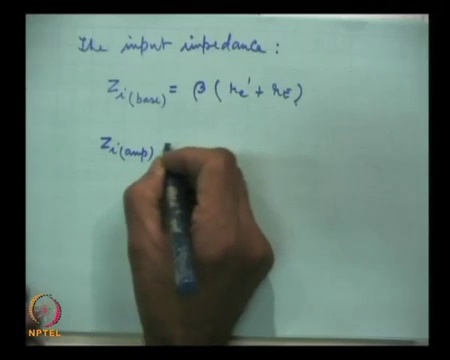 The input impedance :
Z i(base) = β ( re' + rE )
Z i(amp)
NPTEL